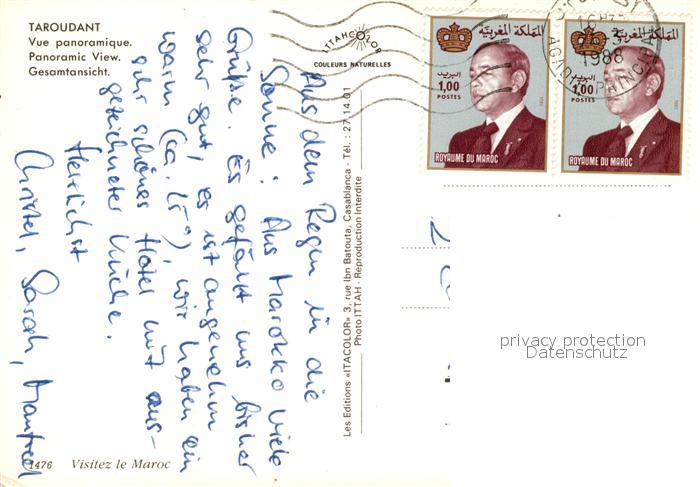 TAROUDANT
Vue panoramique.
Panoramic View.
Gesamtansicht.
ITTAHCOLOR
COULEURS NATURELLES
Aus dem Regen in die
Sonne! Aus Marokko viele
Grüße. Es gefällt uns bisher
sehr gut, es ist angenehm
warm (ca. 25°), wir haben ein
sehr schönes Hotel mit aus-
gezeichneter Küche.
Herzlichst
Christel, Sarah, Manfred
1476 Visitez le Maroc
Les Editions «ITACOLOR» 3, rue Ibn Batouta, Casablanca - Tél. : 27.14.01
Photo ITTAH - Reproduction Interdite
المملكة المغربية
البريد
1,00
POSTES
ROYAUME DU MAROC
المملكة المغربية
البريد
1,00
POSTES
ROYAUME DU MAROC
1988
privacy protection
Datenschutz